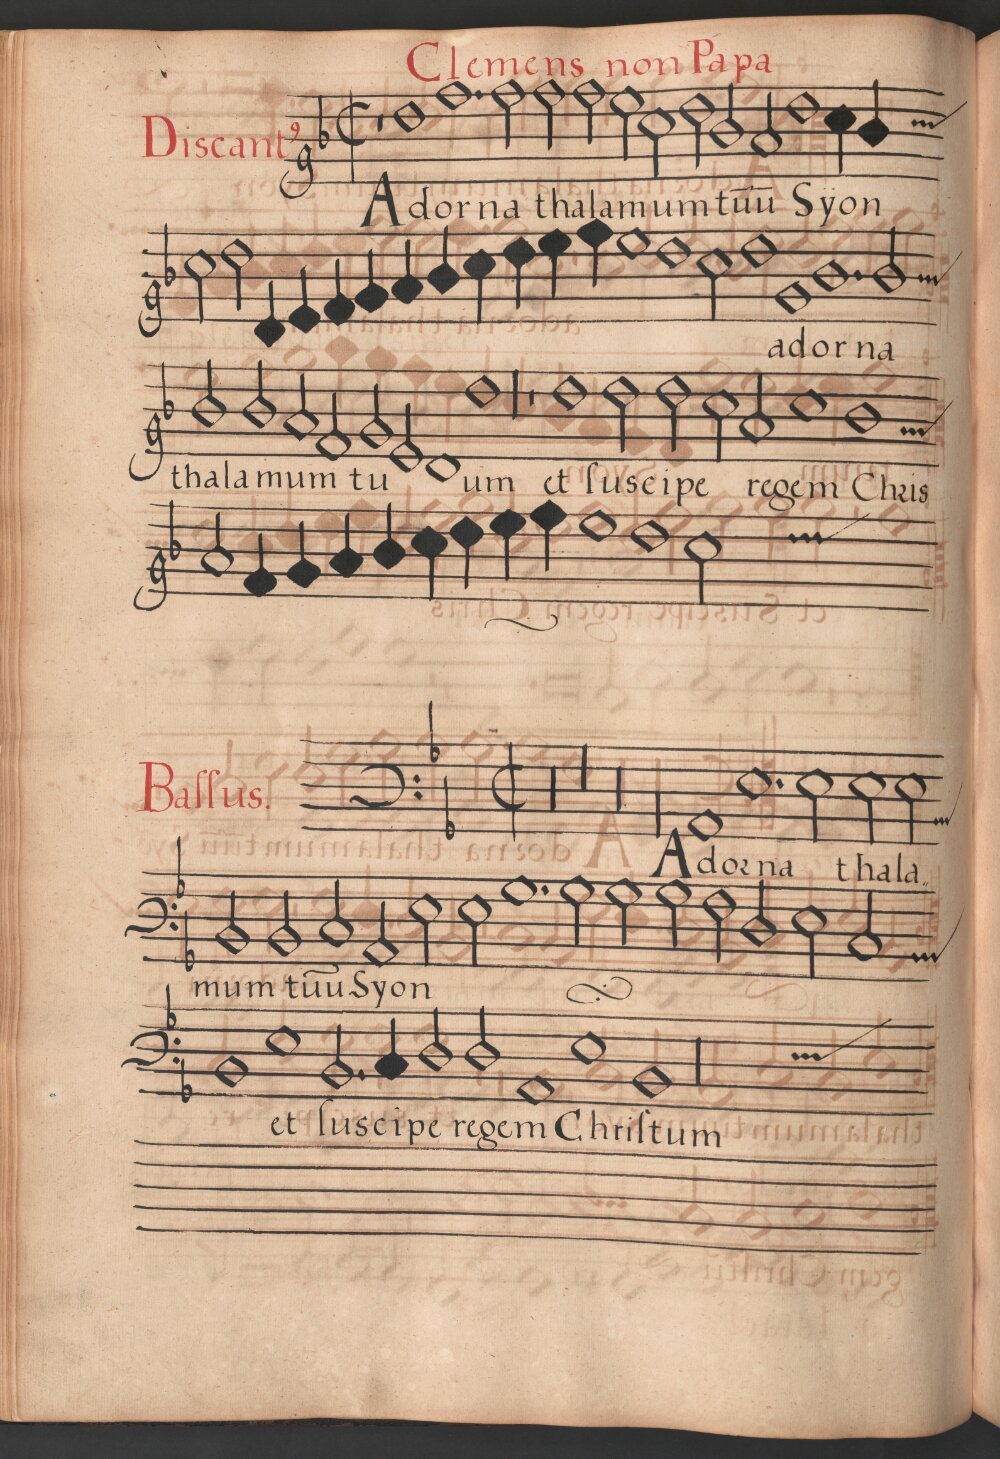 Clemens non Papa
Discantꝰ
Adorna thalamum tūū Syon
adorna
thalamum tu um et ſuscipe regem Chris
Baſſus.
Adorna thala.
mum tūu Syon
et ſuscipe regem Chriſtum